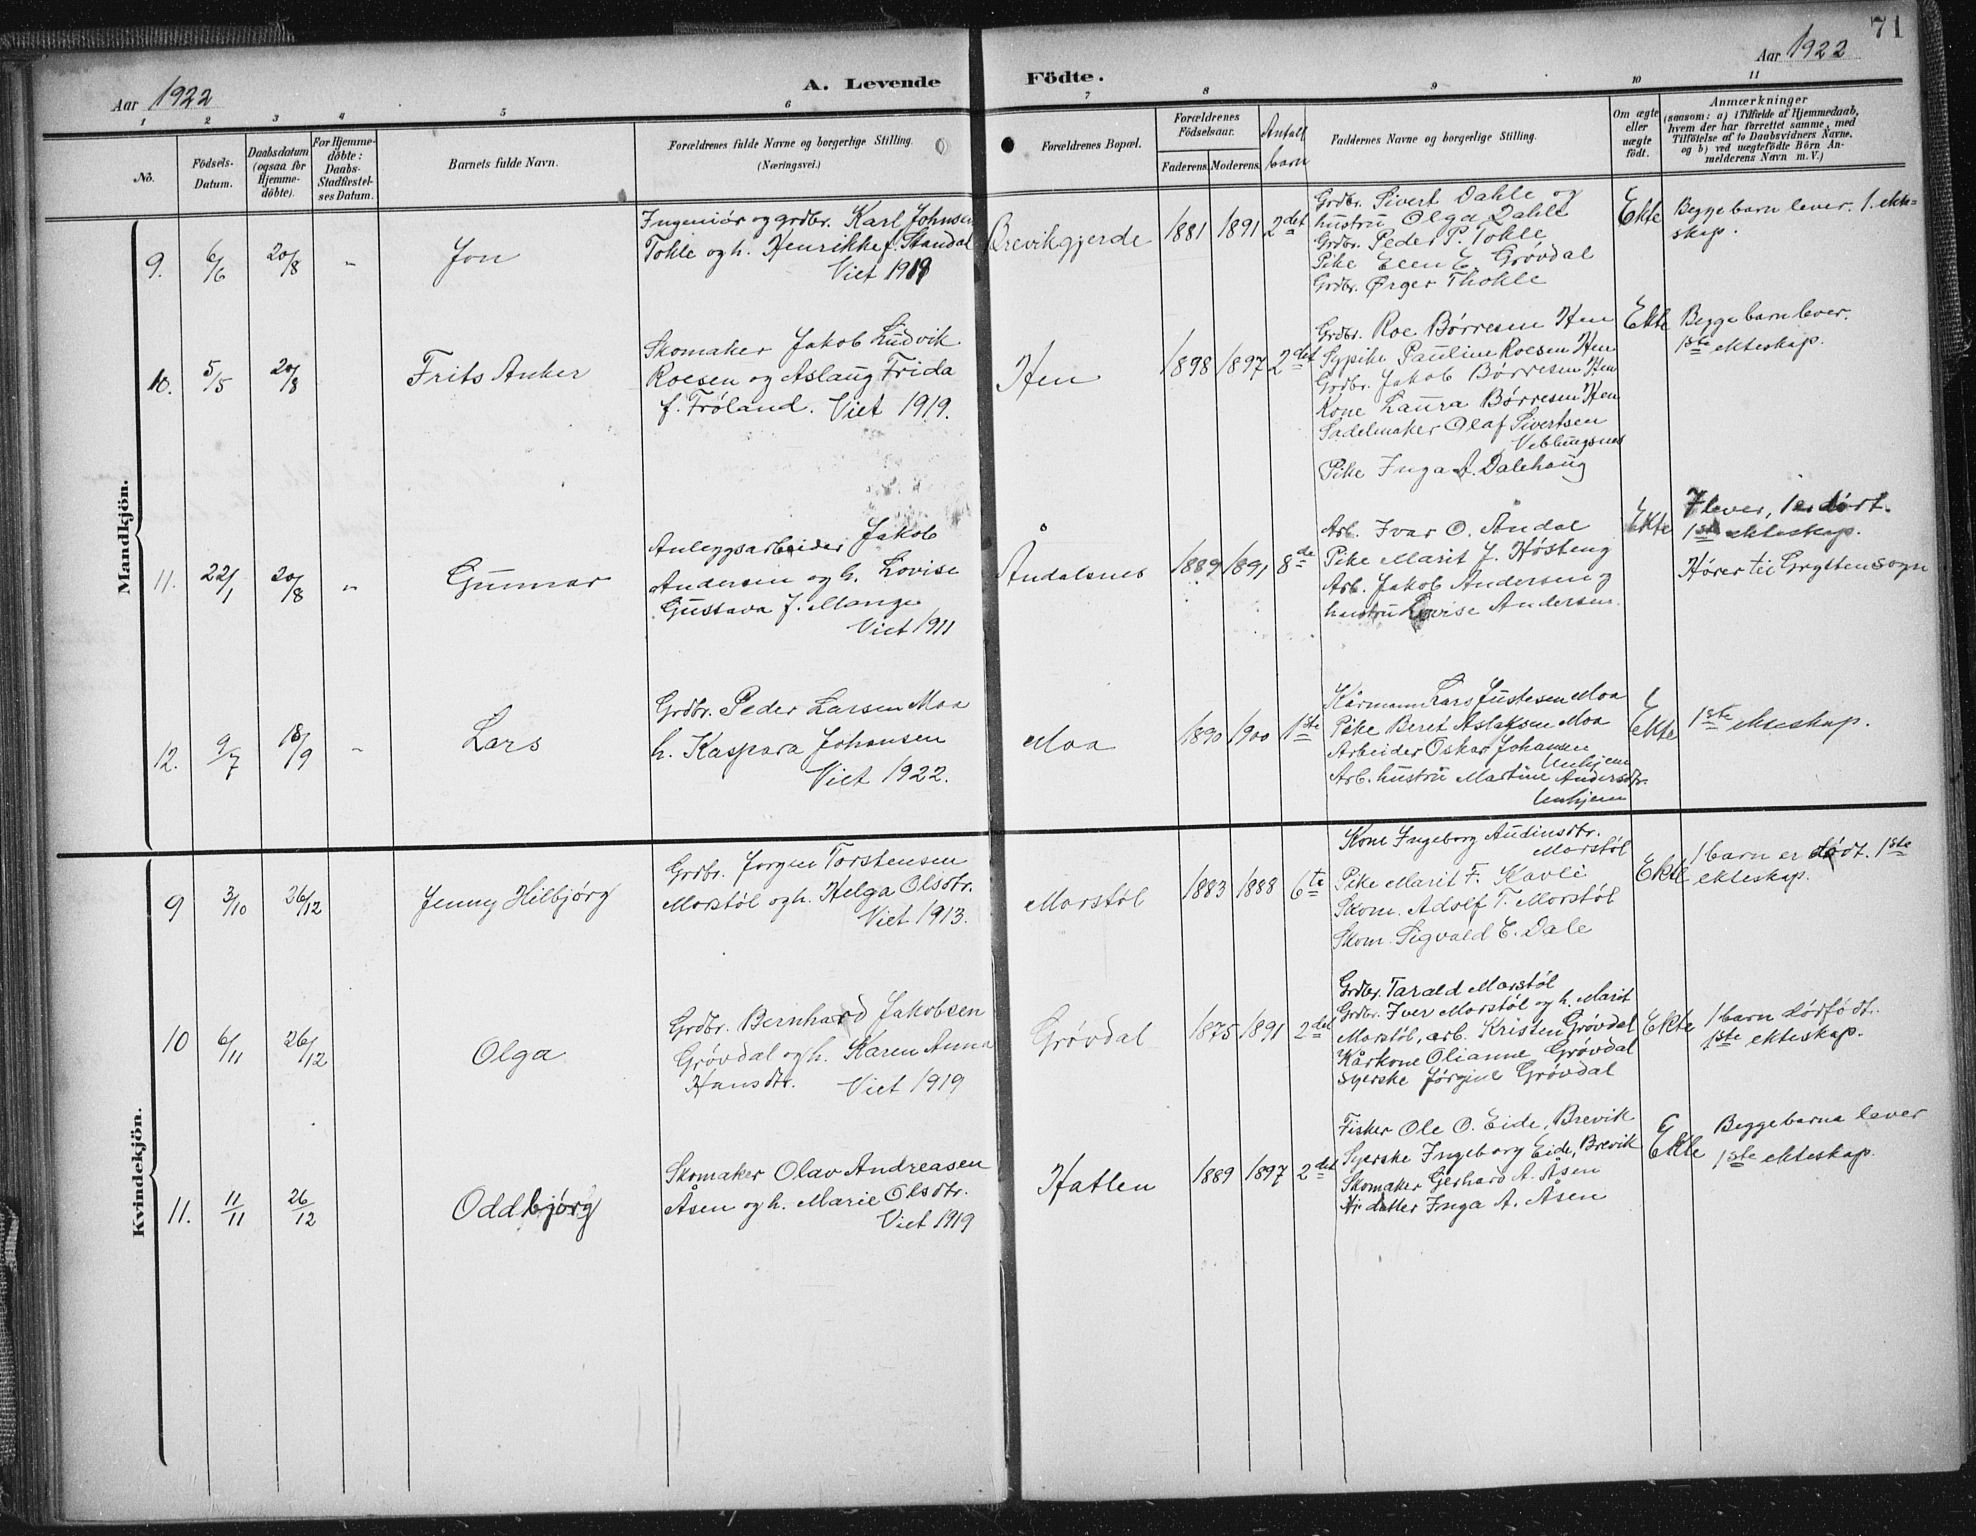 71
Aar 1922
A. Levende Födte.
Aar 1922
1 2 3 4 5 6 7 8 9 10 11
No.
Födsels-
Datum.
Daabsdatum
(ogsaa for
Hjemme-
döbte).
For Hjemme-
döbte:
Daabs-
Stadfæstel-
ses Datum.
Barnets fulde Navn.
Forældrenes fulde Navne og borgerlige Stilling.
(Næringsvei.)
Forældrenes Bopæl.
Forældrenes
Födselsaar.
Faderens. Moderens.
Antall
barn
Faddernes Navne og borgerlige Stilling.
Om ægte
eller
uægte
födt.
Anmærkninger
(saasom: a) i Tilfælde af Hjemmedaab,
hvem der har forrettet samme, med
Tilföielse af to Daabsvidners Navne,
og b) ved uægtefödte Börn An-
melderens Navn m. V.)
Mandkjön.
9. 6/6 20/8 " Jon
Ingeniör og grdbr. Karl Johnsen
Tokle og h. Henrikke f. Standal
Viet 1919
Brevikgjerde 1881 1891 2det
Grdbr. Sivert Dahle og
hustru Olga Dahle
Grdbr. Peder P. Tokle
Pike Ellen E. Grøvdal
Grdbr. Ørger Thokle
Ekte
Begge barn lever. 1. ekte-
skap.
10. 5/5 20/8 Frits Anker
Skomaker Jakob Ludvik
Roesen og Aslaug Frida
f. Frøland. Viet 1919.
Hen 1898 1897 2det
Grdbr. Roe Børresen Hen
Sypike Pauline Roesen Hen
Grdbr. Jakob Børresen Hen
Kone Laura Børresen Hen
Sadelmaker Olaf Sivertsen
Veblungsnes
Pike Inga A. Dalehaug
Ekte
Begge barn lever.
1ste ekteskap.
11. 22/1 20/8 " Gunnar
Anleggsarbeider Jakob
Andersen og h. Lovise
Gustava f. Mange
Viet 1911
Åndalsnes 1889 1891 8de
Arb. Ivar O. Åndal
Pike Marit J. Høsteng
Arb. Jakob Andersen og
hustru Lovise Andersen.
Ekte
7 lever, 1 er dødt.
1ste ekteskap.
Hører til Grytten sogn
12. 9/7 18/9 " Lars
Grdbr. Peder Larsen Moa
h. Kaspara Johansen
Viet 1922.
Moa 1890 1900 1ste
Kårmann Lars Justesen Moa
Pike Beret Aslaksen Moa
Arbeider Oskar Johansen
Unhjem
Arb. hustru Martine Andersdtr.
Unhjem
Ekte
1ste ekteskap.
Kvindekjön.
9 3/10 26/12 Jenny Hilbjørg
Grdbr. Jorgen Torstensen
Morstøl og h. Helga Olsdtr.
Viet 1913.
Morstøl 1883 1888 6te
Kone Ingeborg Audinsdtr.
Morstøl
Pike Marit F. Kavli
Skom. Adolf T. Morstøl
Skom. Sigvald E. Dale
Ekte
1 barn er dødt. 1ste
ekteskap.
10 6/11 26/12 Olga
Grdbr. Bernhard Jakobsen
Grøvdal og h. Karen Anna
Hansdtr. Viet 1919
Grøvdal 1875 1891 2det
Grdbr. Tarald Morstøl
Grdbr. Iver Morstøl og h. Marit
Morstøl, arb. Kristen Grøvdal
Kårkone Olianne Grøvdal
Syerske Jørgine Grøvdal
Ekte
1 barn dødfødt.
1ste ekteskap.
11. 11/11 26/12 Oddbjørg
Skomaker Olav Andreasen
Åsen og h. Marie Olsdtr.
Viet 1919
Hatlen 1889 1897 2det
Fisker Ole O. Eide, Brevik
Syerske Ingeborg Eide, Brevik
Skomaker Gerhard A. Åsen
datter Inga A. Åsen
Ekte
Begge barna lever
1ste ekteskap.